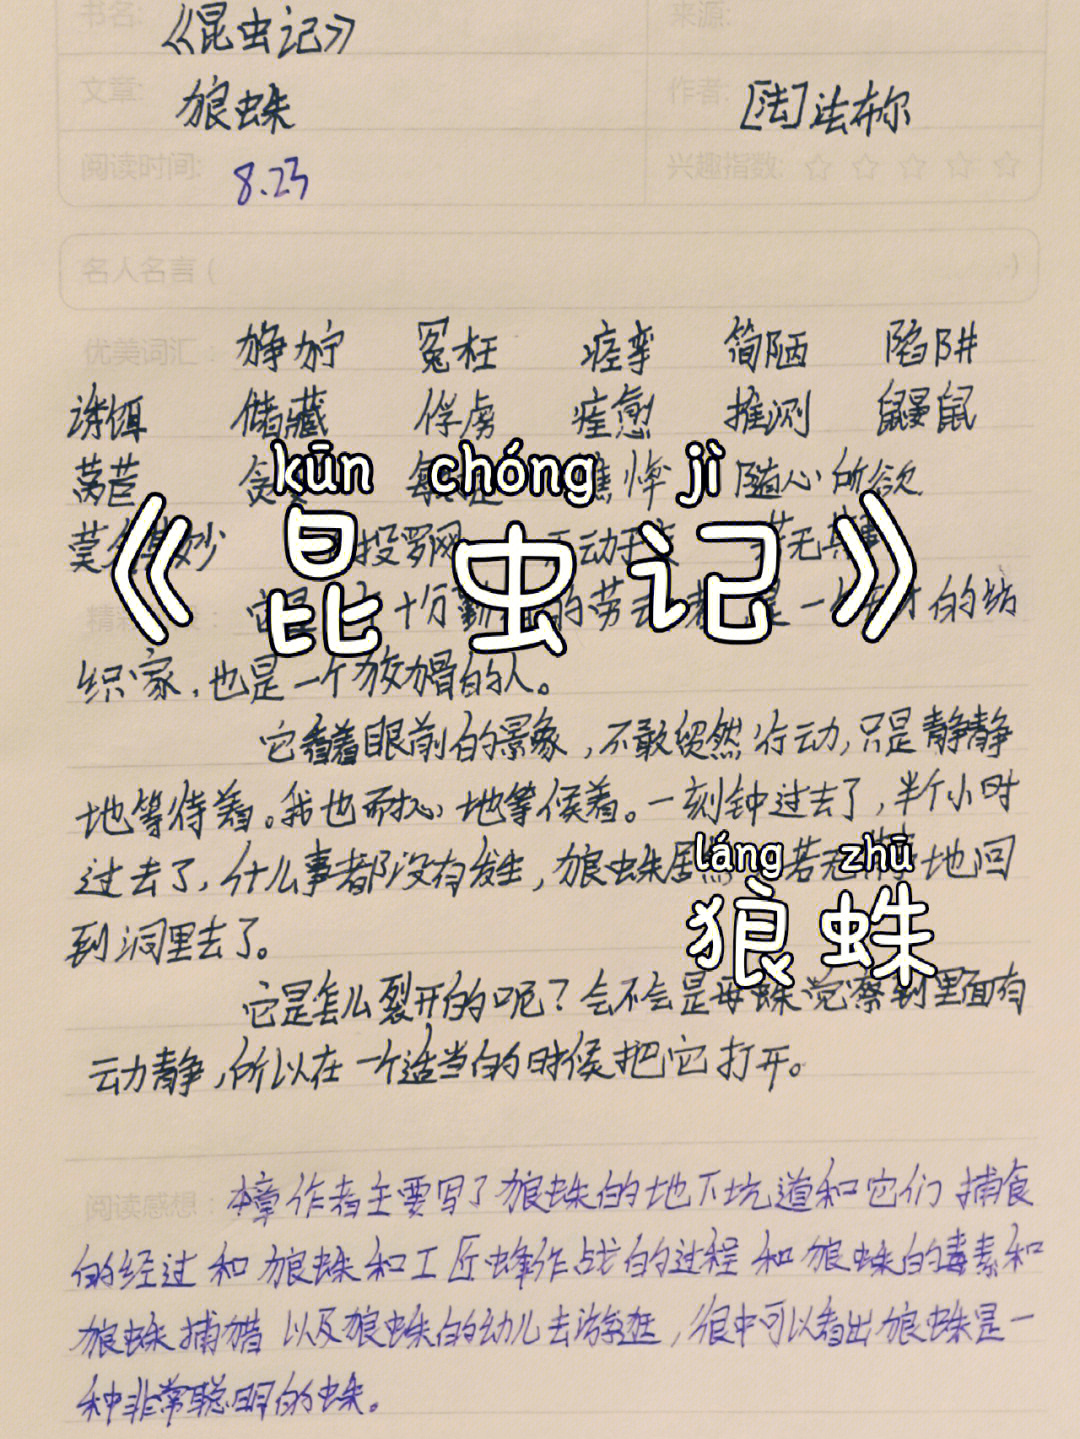 书名: 《昆虫记》 来源:
文章: 狼蛛 作者: [法]法布尔
阅读时间: 8.23 兴趣指数: ☆ ☆ ☆ ☆ ☆
名人名言 ( )
优美词汇: 狰狞 冤枉 痉挛 简陋 陷阱
诱饵 储藏 俘虏 痊愈 推测 鼹鼠
莴苣 随心所欲
kūn chóng jì
《昆虫记》
莫名其妙 投罗网 若无其事
它是 十万 的劳 是一 的纺
织家,也是一个狡猾的人。
它看着眼前的景象,不敢贸然行动,只是静静
地等待着。我也耐心地等候着。一刻钟过去了,半个小时
过去了,什么事都没有发生,狼蛛居 若无 地回
láng zhū
狼蛛
到洞里去了。
它是怎么裂开的呢?会不会是母蛛觉察到里面有
动静,所以在一个适当的时候把它打开。
阅读感想: 本章作者主要写了狼蛛的地下坑道和它们捕食
的经过和狼蛛和工匠蜂作战的过程和狼蛛的毒素和
狼蛛捕猎以及狼蛛的幼儿去游逛,很中可以看出狼蛛是一
种非常聪明的蛛。